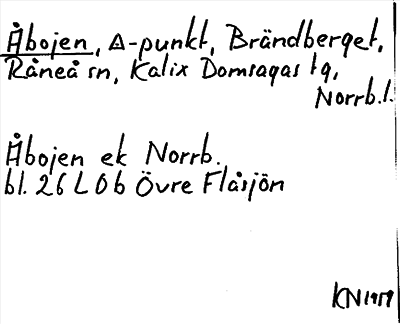 Åbojen, △-punkt, Brändberget,
Råneå sn, Kalix Domsagas tg,
Norrb.l.
Åbojen ek Norrb.
bl. 26 L 0b Övre Flåsjön
KN 1959